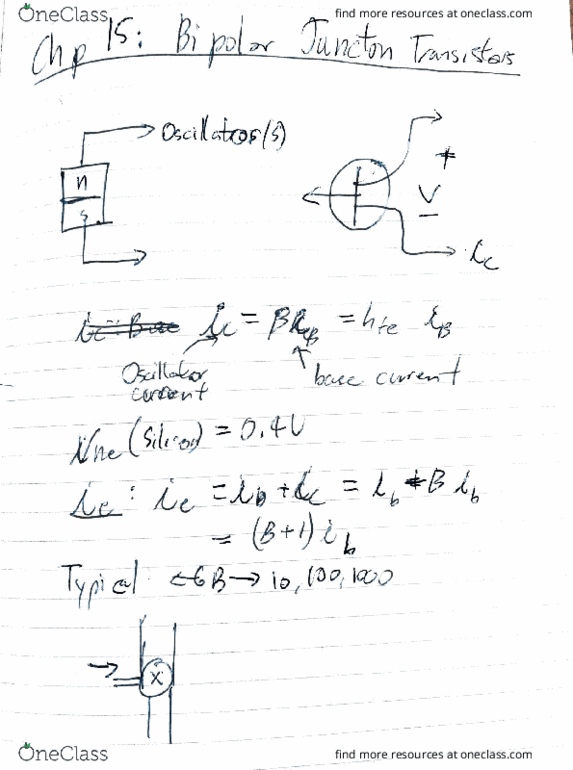 OneClass
find more resources at oneclass.com
Chp 15: Bipolar Juncton Transistors
Oscillator(s)
n
s
+
V
−
ic
ic = βiB = hfe iB
Oscillator current
base current
(Silicon) = 0.4V
ie : ie = ib + ic = ib + B ib
= (B+1) ib
Typical B → 10, 100, 1000
X
OneClass
find more resources at oneclass.com